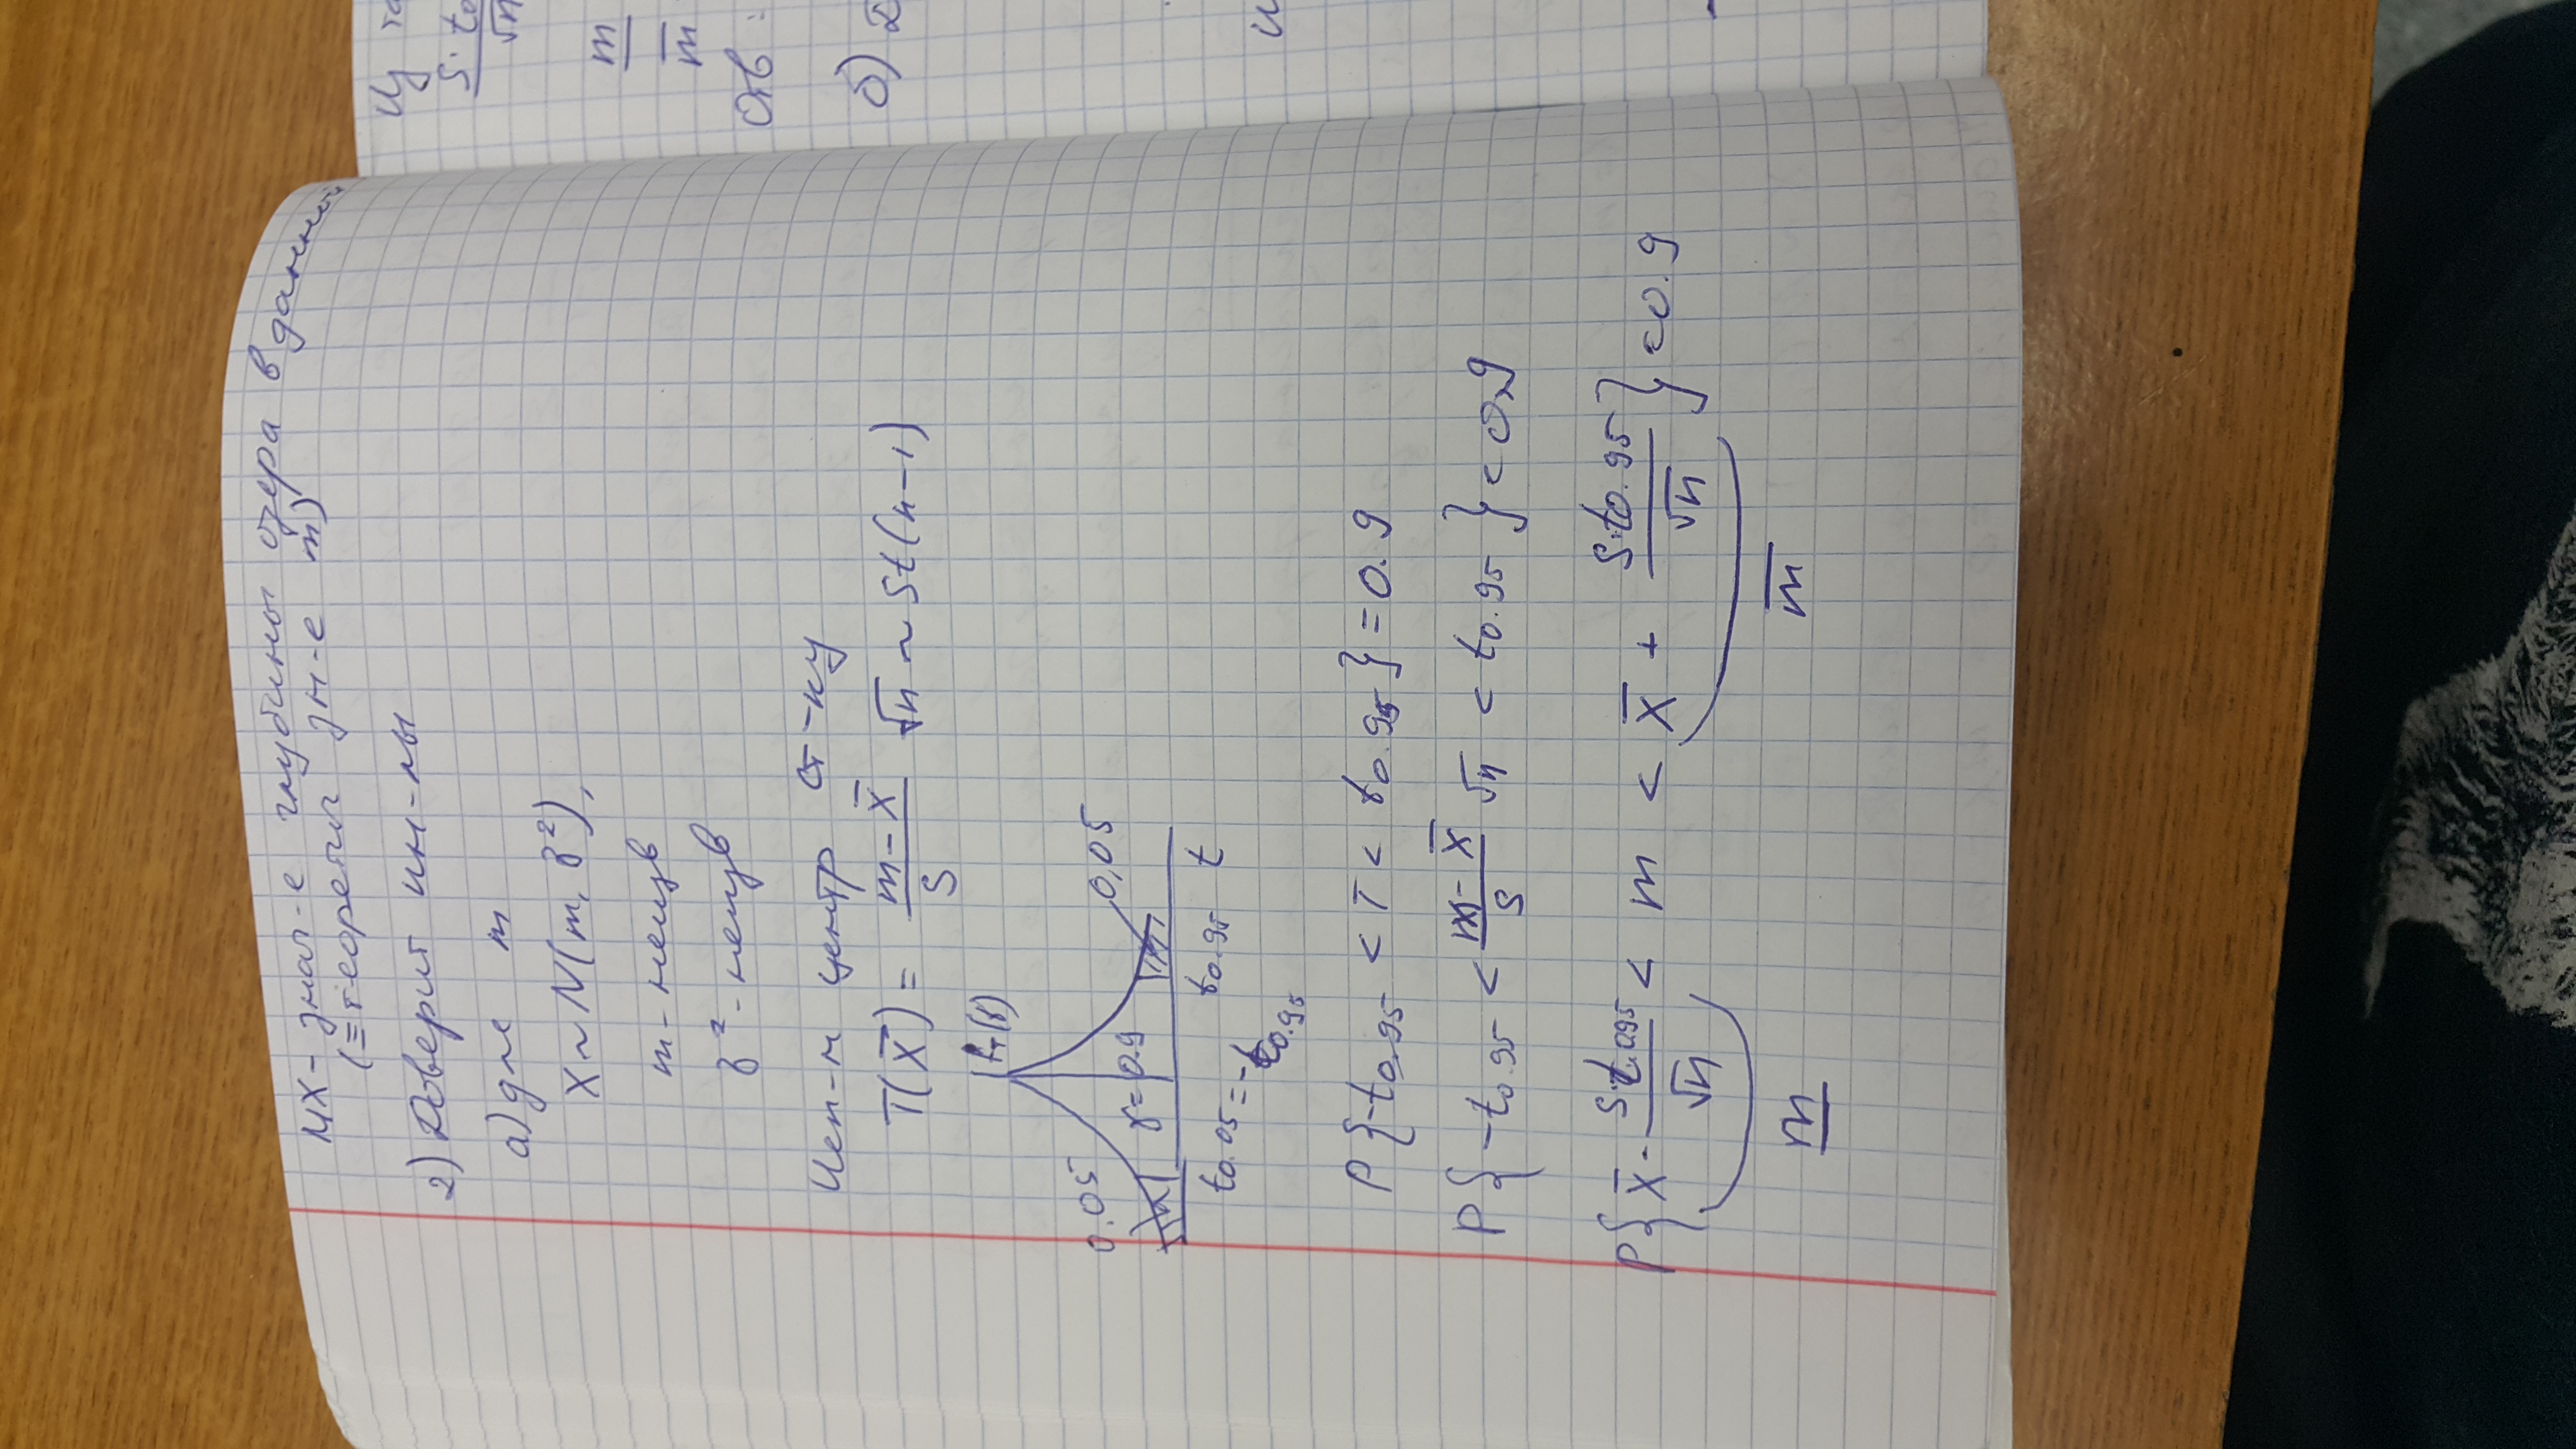 MX - знач-е глубины озера в данной
(≡ теоретич зн-е m)
2) Доверит ин-лы
а) для m
X ~ N(m, σ²),
m - неизв
σ² - неизв
Исп-м центр ст-ку
T(X̄) = (m - X̄)/S √n ~ St(n-1)
f_T(t)
0.05
γ = 0.9
0,05
t_0.05 = -t_0.95
t_0.95
t
P{-t_0.95 < T < t_0.95} = 0.9
P{-t_0.95 < (m - X̄)/S √n < t_0.95} = 0.9
P{X̄ - S·t_0.95/√n < m < X̄ + S·t_0.95/√n} = 0.9
m̲
m̅
Из та
S·t_0
√n
m̲
m̅
Отв:
б) Д